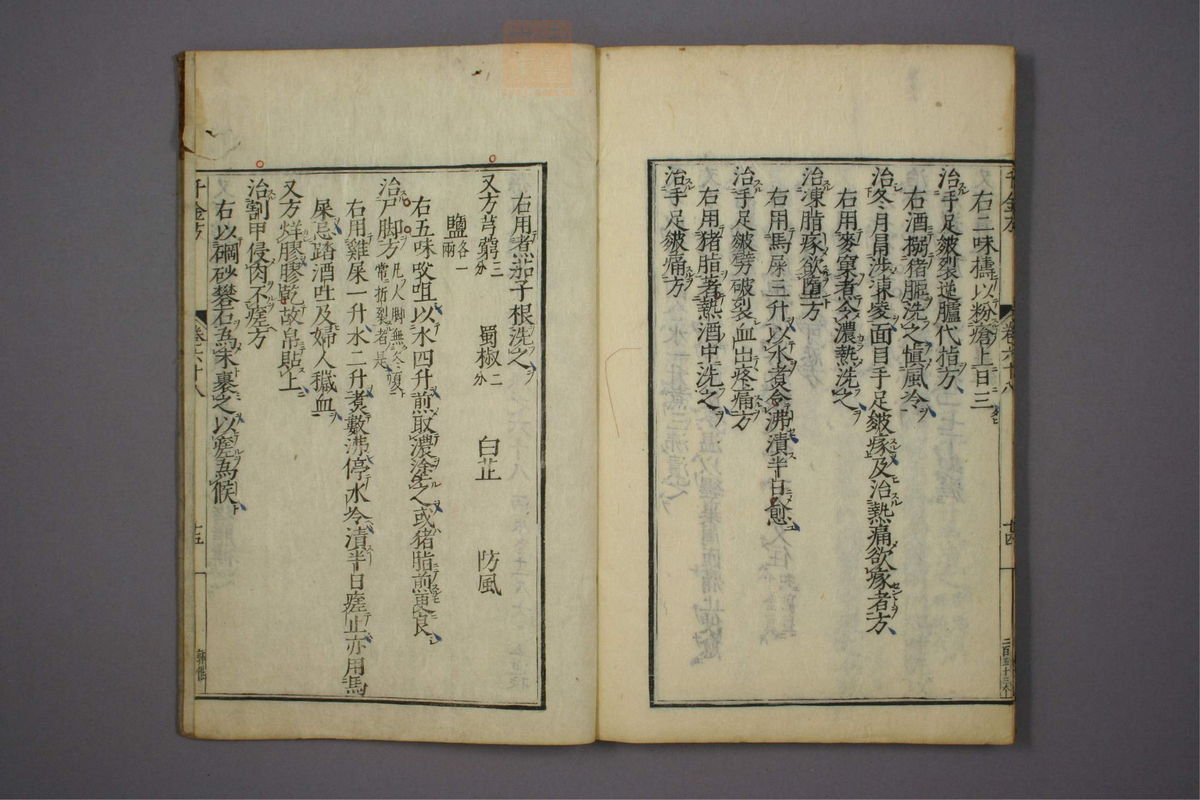 右二味擣以粉瘡上日三
治手足皴裂逆臚代指方
右酒搦猪胘洗之慎風冷
治冬月冒涉凍凌面目手足皴瘃及治熱痛欲瘃者方
右用麥窠煮令濃熱洗之
治凍脂瘃欲墮方
右用馬屎三升以水煮令沸漬半日愈
治手足皴劈破裂血出疼痛方
右用猪脂著熱酒中洗之
治手足皴痛方
千金方
卷六十八
廿四
右用煮茄子根洗之
又方芎藭三分
蜀椒二分
白芷
防風
鹽各一兩
右五味㕮咀以水四升煎取濃塗之或猪脂煎更良
治尸脚方凡人脚無冬夏常坼裂者是
右用雞屎一升水二升煮數沸停水冷漬半日瘥止亦用馬
屎忌踏酒吐及婦人穢血
又方烊膠膠乾故帛貼上
治割甲侵肉不瘥方
右以硇砂礬石爲末裹之以瘥爲候
千金方
卷六十八
廿五